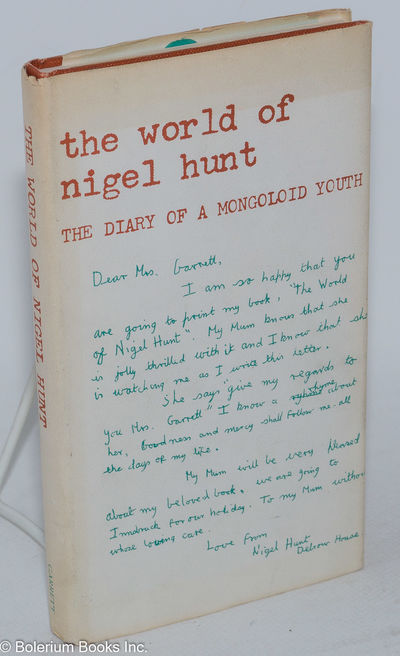 the world of
nigel hunt
THE DIARY OF A MONGOLOID YOUTH
Dear Mrs. Garrett,
I am so happy that you
are going to print my book, "The World
of Nigel Hunt". My Mum knows that she
is jolly thrilled with it and I know that she
is watching me as I write this letter.
She says "give my regards to
you Mrs. Garrett" I know a rhyme about
her, Goodness and mercy shall follow me all
the days of my life.
My Mum will be very pleased
about my beloved book. we are going to
Innsbruck for our holiday. To my Mum withou
whose loving care.
Love from
Nigel Hunt
Delrow House
THE WORLD OF NIGEL HUNT
GARRETT
© Bolerium Books Inc.